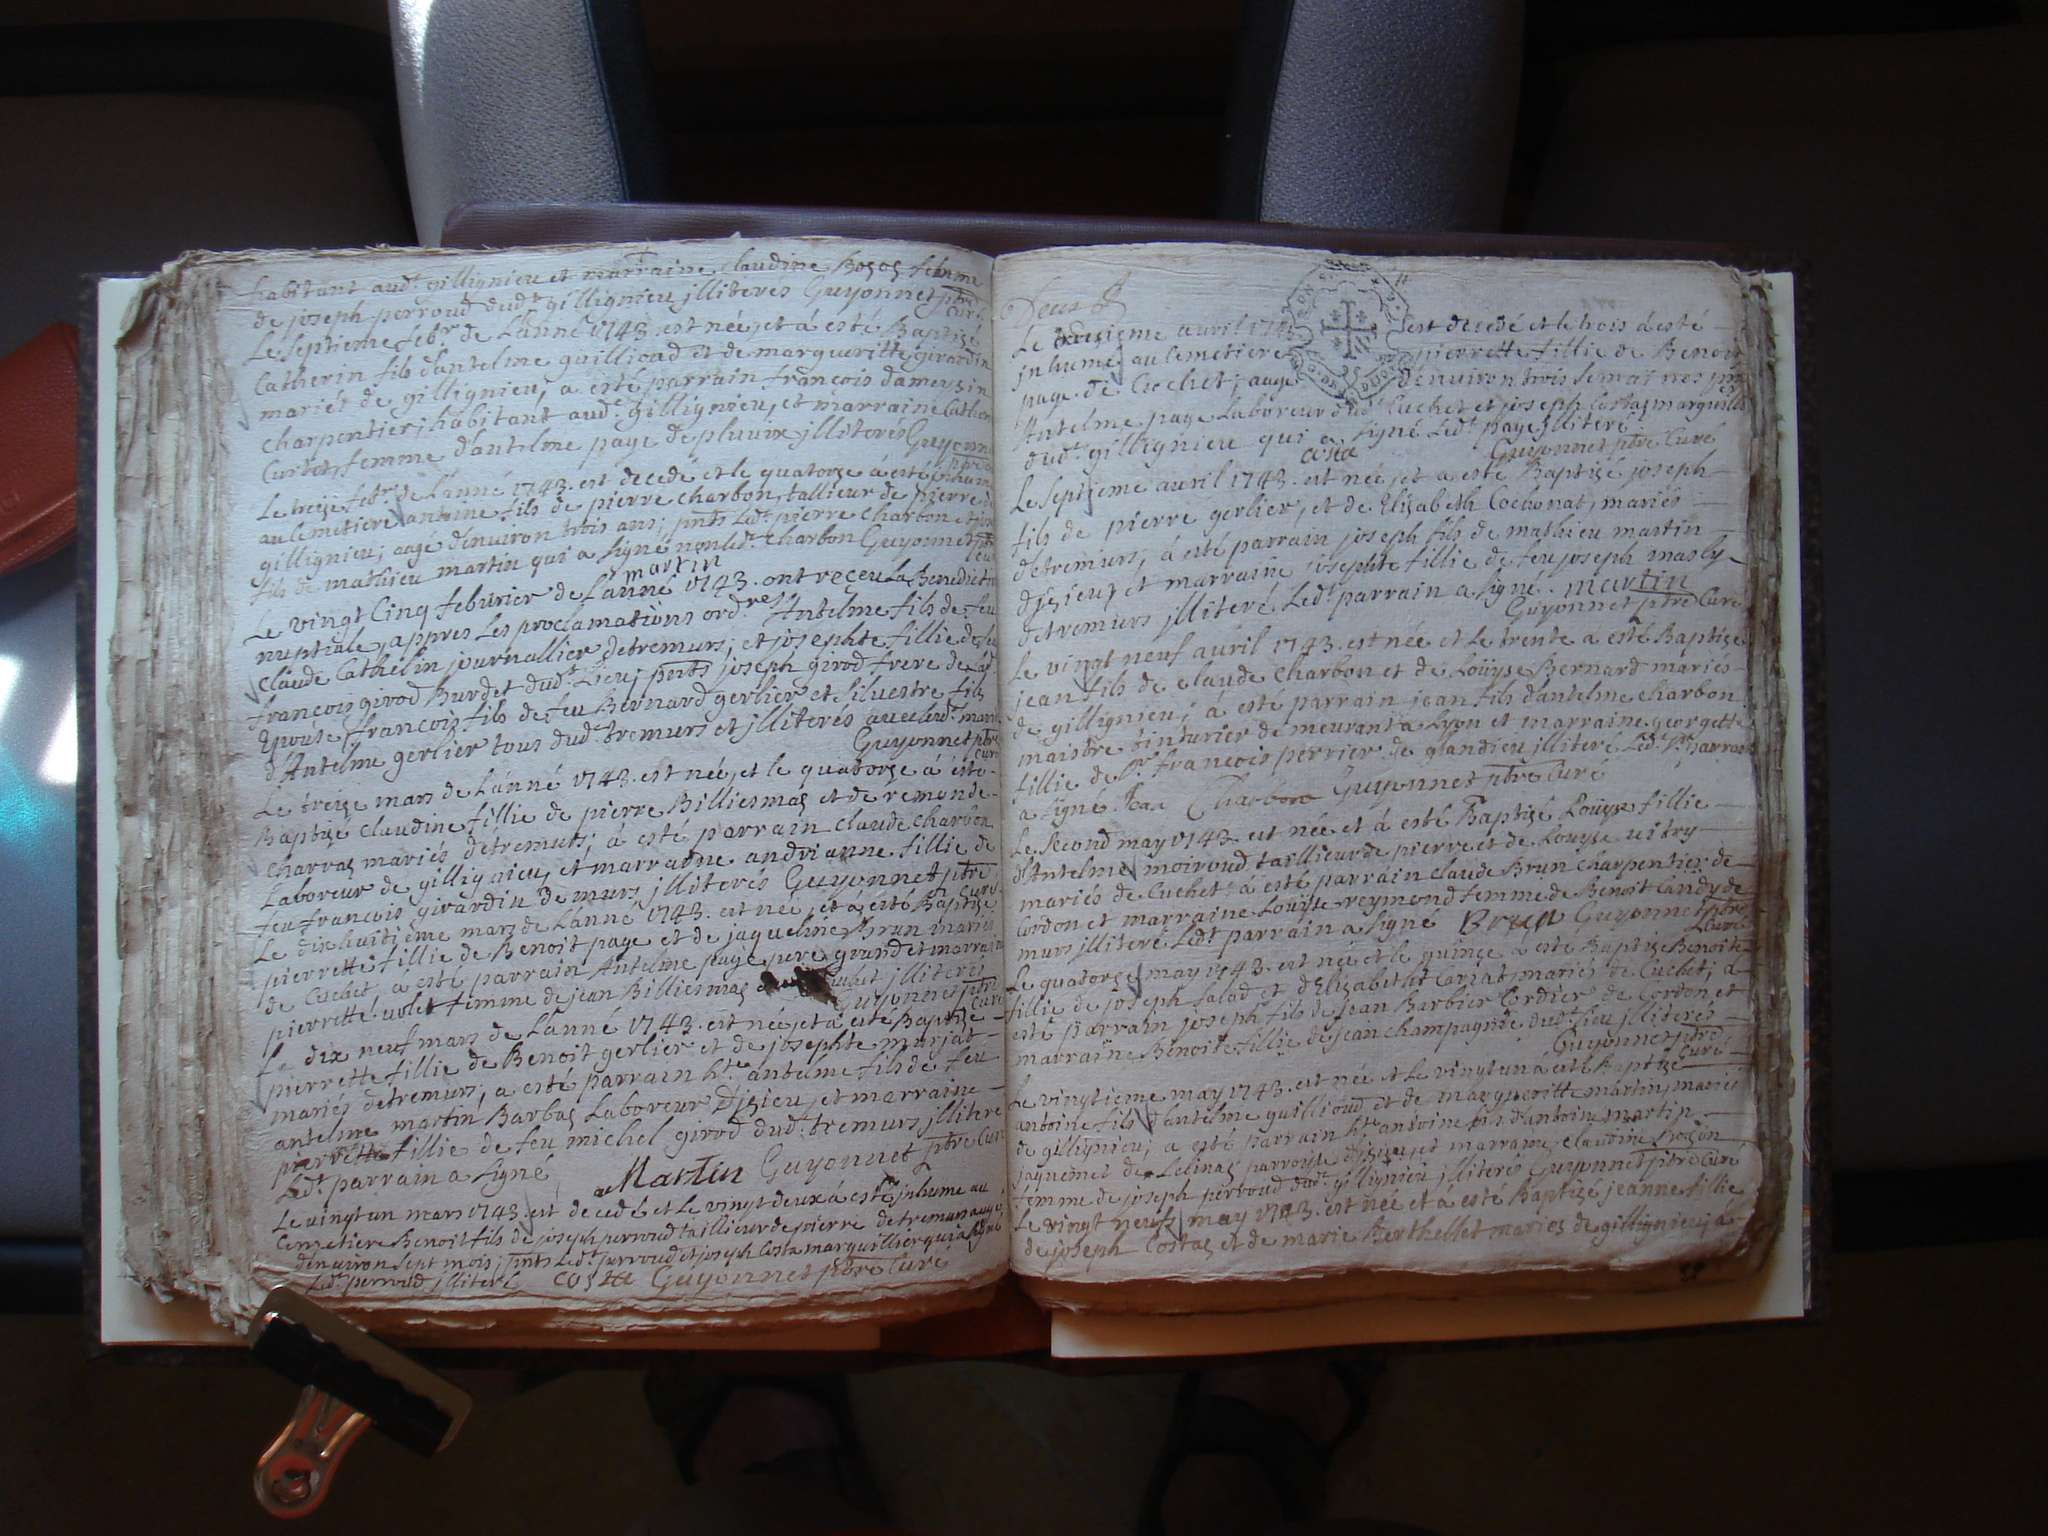 habitant aud.t gillignieu et marraine Claudine femme
de joseph perroud dud.t gillignieu jlliteres Guyonnet ptre Curé
Le septieme feb.r de L'anné 1743. est née, et á esté Baptisé
Catherin fils d'antelme quillioud et de margueritte girardin
mariés de gillignieu; a esté parrain françois damesin
charpentier, habitant aud.t gillignieu, et marraine
femme d'antelme page de pluvix jlliterés Guyonnet
ptre
Le treize feb.r de L'anné 1743. est décedé et le quatorze á esté jnhumé
au cemetiere antoine fils de pierre charbon, tallieur de pierre de
gillignieu; augé d'environ trois ans; pnts Led.t pierre charbon et
fils de mathieu martin qui a signé non led.t charbon Guyonnet ptre
martin
Le vingt Cinq feburier de L'anné 1743. ont reçeu La Benediction
nuptiale, appres Les proclamations ord.res Antelme fils de feu
claude Cathelin journallier de tremurs; et josephte fillie de feu
françois girod Burdet dud.t Lieu; pnts joseph girod frere de
Epouse françois fils de feu Bernard gerlier et silvestre fils
d'Antelme gerlier tous dud.t tremurs et jlliterés
Guyonnet ptre
Curé
Le treize mars de L'anné 1743. est née, et le quatorze á esté
Baptisé Claudine fillie de pierre Billiesmaz et de remonde
Charraz mariés de tremurs; á esté parrain Claude charbon
Laboreur de gillignieu, et marraine andrianne fillie de
feu françois girardin de murs jlliterés Guyonnet ptre
Curé
Le dix huitième mars de L'anné 1743. est née, et a esté Baptisé
pierrette fillie de Benoit page et de jaqueline Brun mariés
de Cuchet, á esté parrain Antelme page pere grand et marraine
pierrette volet femme de jean Billiesmaz jlliterés
Guyonnet ptre
Curé
Le dix neuf mars de L'anné 1743. est née, et a esté Baptisé
pierrette fillie de Benoit gerlier et de josephte murjat
mariés de tremurs; a esté parrain h.te antelme fils de feu
antelme martin Barbaz Laboreur d'jzieu, et marraine
pierrette fillie de feu michel girod dud.t tremurs jllitere
Led.t parrain a signé Martin Guyonnet ptre Curé
Le vingt un mars 1743. est decedé et Le vingt deux á esté jnhumé au
Cemetiere Benoit fils de joseph perroud taillieur de pierre de tremurs augé
d'environ sept mois; pnts Led.t perroud et joseph Costa marguillier qui a signé
Led.t perroud jlliteré Costa Guyonnet ptre Curé
Deux
Le troisieme avril 1743 est decedé et le trois á esté
jnhumé au Cemetiere pierrette fillie de Benoit
page de Cuchet; augé d'environ trois semaines pnts
Antelme page Laboreur dud.t Cuchet et joseph Costaz marguillier
dud.t gillignieu qui a signé Led.t page jlliteré
costa Guyonnet ptre Curé
Le septieme avril 1743. est née, et a esté Baptisé joseph
fils de pierre gerlier, et de Elizabeth Cochonat, mariés
de tremurs; á esté parrain joseph fils de mathieu martin
d'jzieu, et marraine josephte fillie de feu joseph masly
de tremurs jlliteré Led.t parrain a signé. martin
Guyonnet ptre Curé
Le vingt neuf avril 1743. est née et Le trente a esté Baptisé
jean fils de claude Charbon et de Loüyse Bernard mariés
de gillignieu; á esté parrain jean fils d'antelme charbon
maistre tinturier demeurant a Lyon et marraine georgette
fillie de S.r françois perrier de glandieu jlliteré Led.t S.r parrain
a signé Jean Charbon Guyonnet ptre Curé
Le second may 1743. est née et á esté Baptisé Loüyse fillie
d'Antelme moiroud taillieur de pierre et de Louyse vitry
mariés de Cuchet á esté parrain Claude Brun Charpentier de
Cordon et marraine Loüyse reymond femme de Benoit Candy de
murs jlliteré Led.t parrain a signé Brun Guyonnet ptre
Curé
Le quatorze may 1743. est née et le quinze a esté Baptisé Benoite
fillie de joseph salad et d'Elizabetht Corjat mariés de Cuchet; a
esté parrain joseph fils de jean Barbier Cordier de Cordon et
marraine Benoite fillie de jean champagne dud.t Lieu jlliterés
Guyonnet ptre
Curé
Le vingtieme may 1743. est née et Le vingt un á esté Baptisé
antoine fils d'antelme quillioud et de margueritte martin, mariés
de gillignieu; a esté parrain h.te antoine fils d'antoine martin
jaquemet de Lelinaz parroisse d'jzieu, et marraine Claudine
femme de joseph perroud dud.t gillignieu jlliterés Guyonnet ptre Curé
Le vingt neuf may 1743. est née et á esté Baptisé jeanne fillie
de joseph Costaz et de marie Berthellet mariés de gillignieu; á